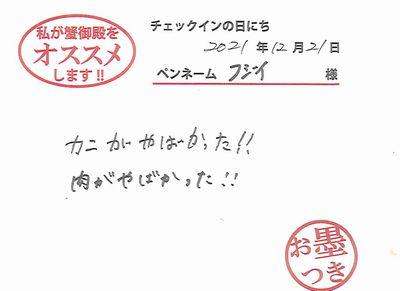 私が蟹御殿を
オススメ
します!!
チェックインの日にち
2021年12月21日
ペンネーム フジイ 様
カニがやばかった!!
肉がやばかった!!
お墨
つき